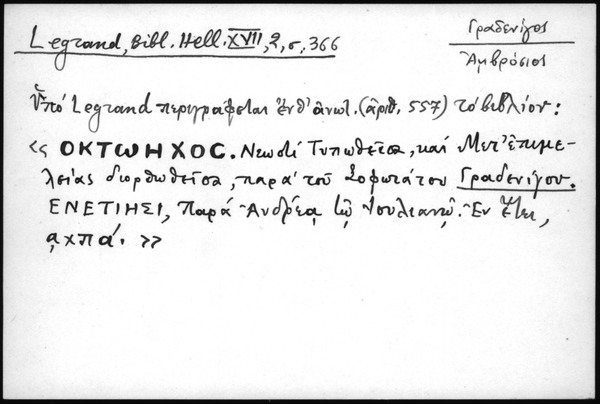 Legrand, Bibl. Hell. XVII, 2, σ. 366
Γραδενίγος
Ἀμβρόσιος
Ὑπό Legrand περιγράφεται ἐνθ' ἀνωτ. (ἀριθ. 557) τό βιβλίον:
« ΟΚΤΩΗΧΟΣ. Νεωστί Τυπωθεῖσα, καί Μετ' ἐπιμε-
λείας διορθωθεῖσα, παρά τοῦ Σοφωτάτου Γραδενίγου.
ΕΝΕΤΙΗΣΙ, Παρά Ἀνδρέᾳ τῷ Ἰουλιανῷ. Ἐν ἔτει,
αχπά. »